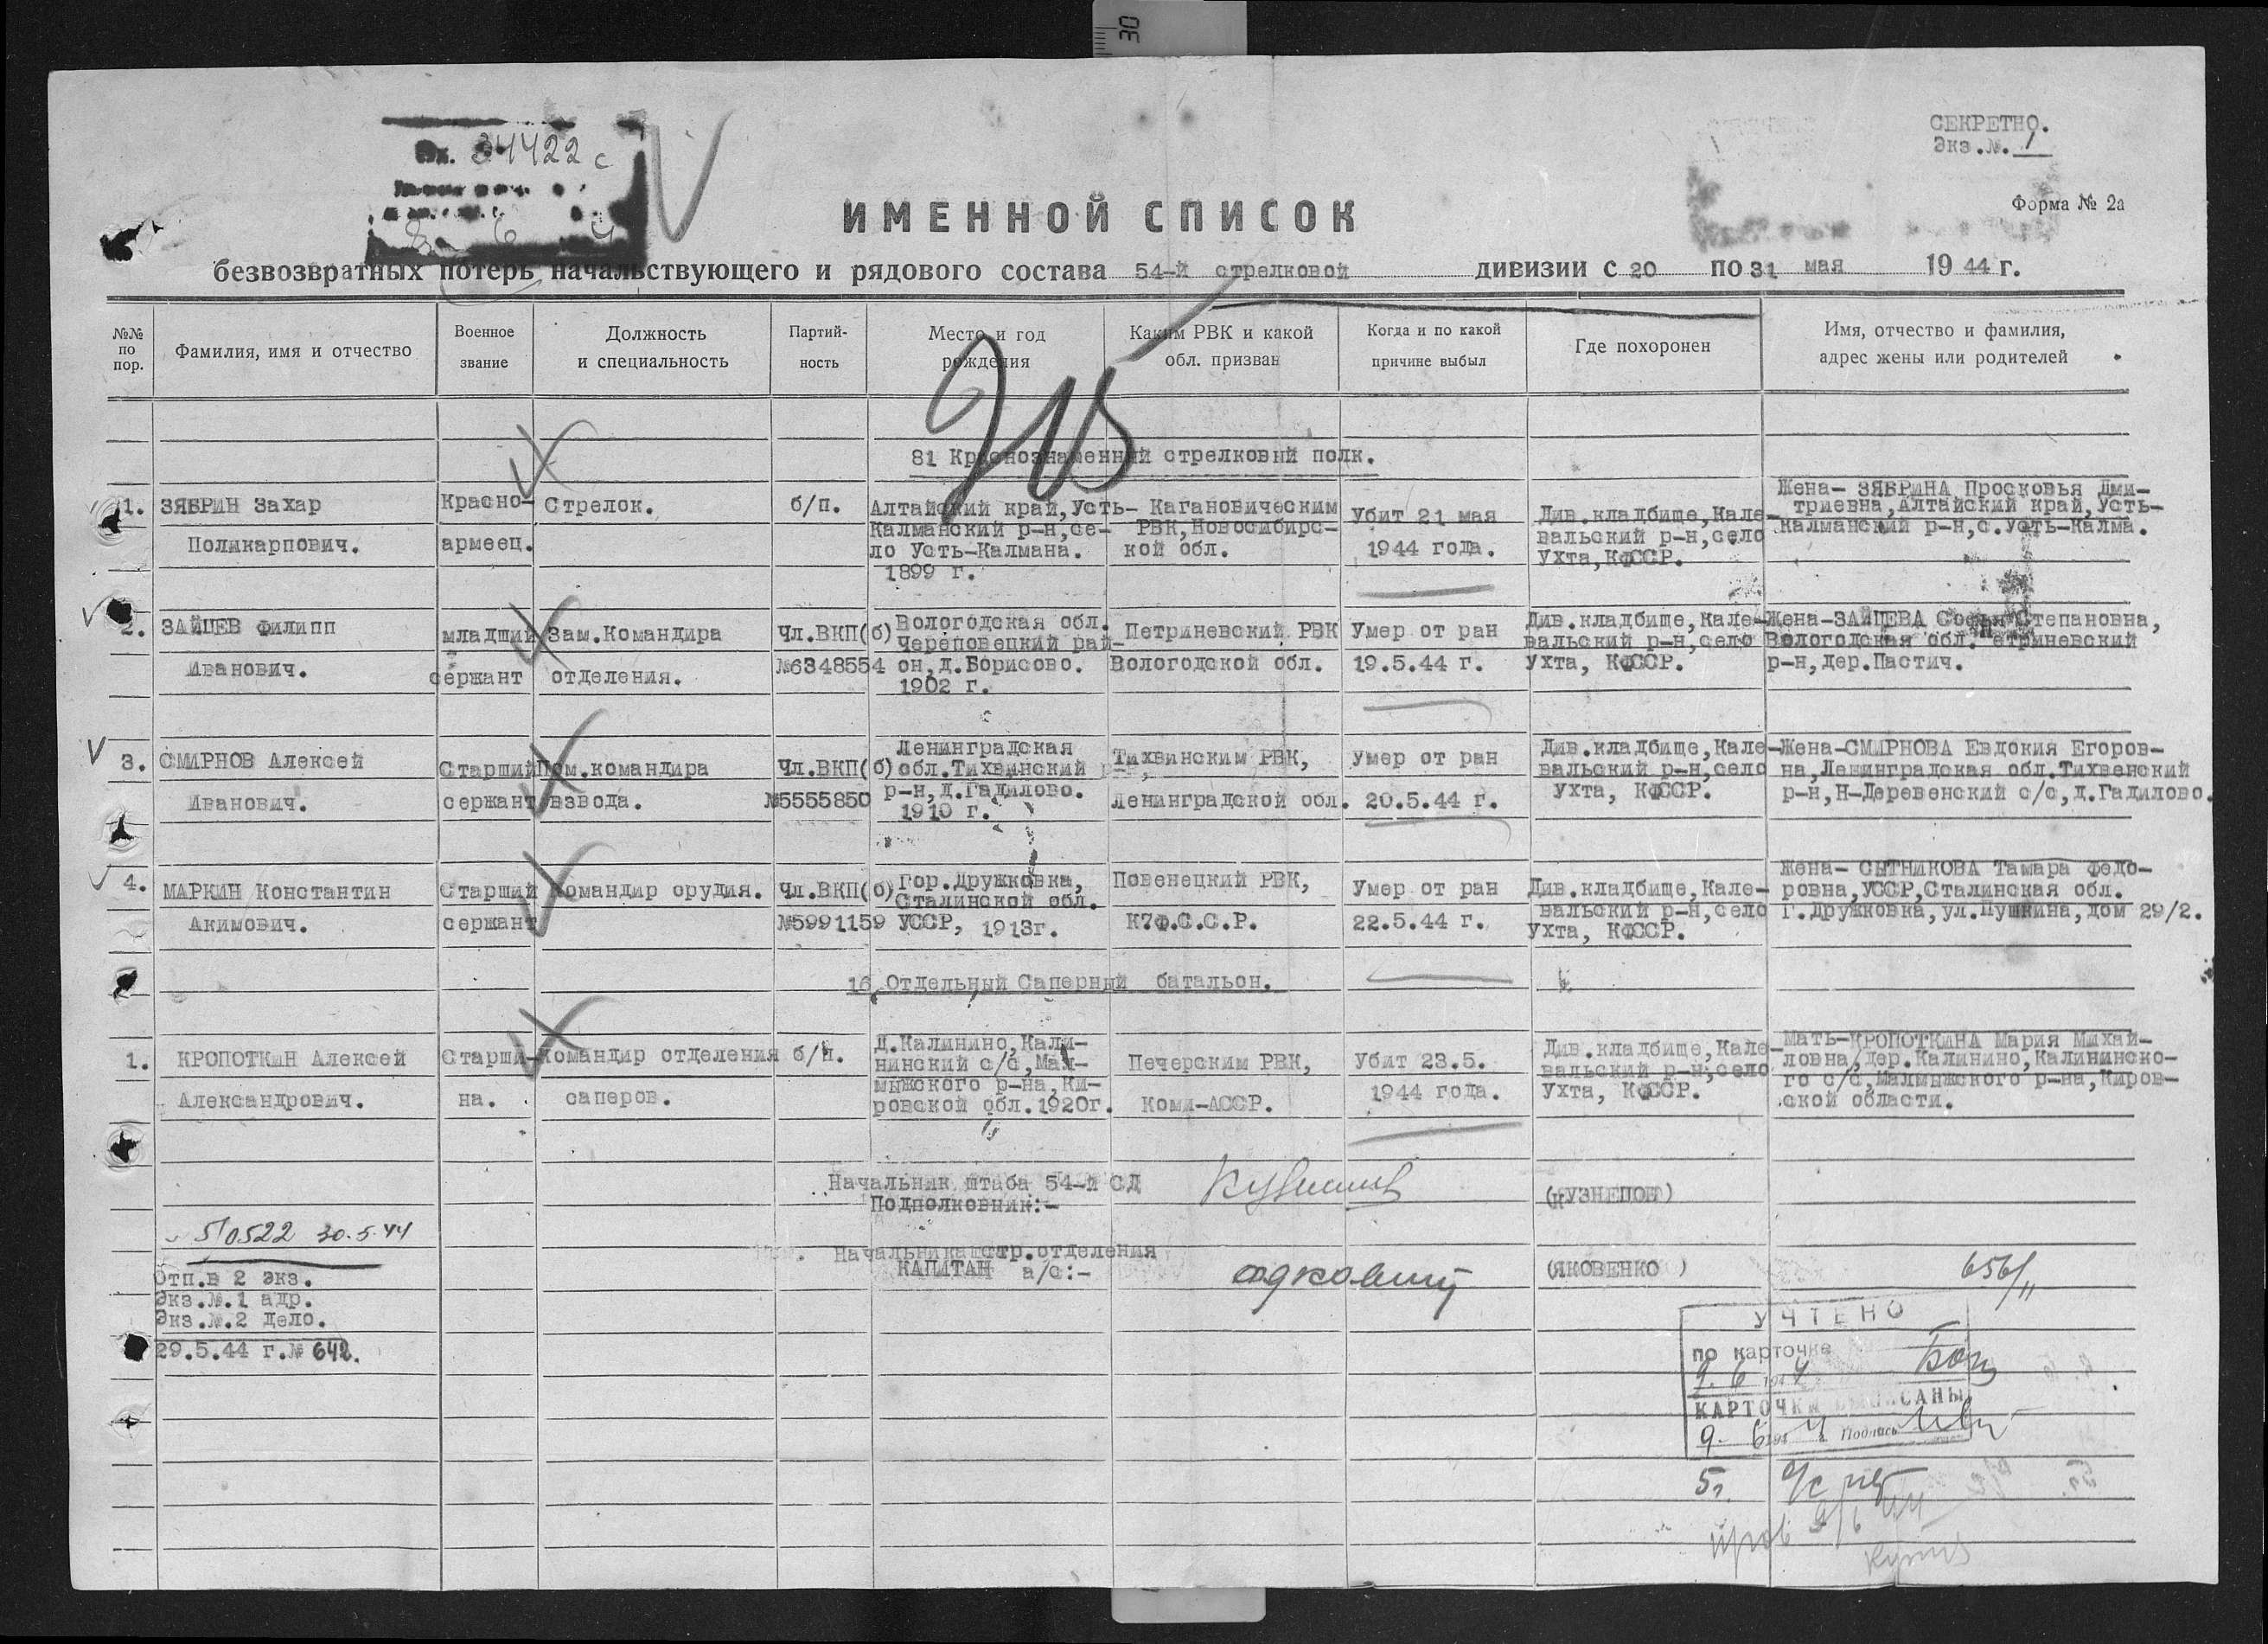 30
Вх. 34422 с
СЕКРЕТНО.
Экз.№. 1
Форма № 2а
ИМЕННОЙ СПИСОК
безвозвратных потерь начальствующего и рядового состава 54-й стрелковой дивизии с 20 по 31 мая 1944 г.
№№ по пор.
Фамилия, имя и отчество
Военное звание
Должность и специальность
Партий-ность
Место и год рождения
Каким РВК и какой обл. призван
Когда и по какой причине выбыл
Где похоронен
Имя, отчество и фамилия, адрес жены или родителей
81 Краснознаменный стрелковый полк.
1.
ЗЯБРИН Захар
Поликарпович.
Красно-
армеец.
Стрелок.
б/п.
Алтайский край,Усть-
Калманский р-н,се-
ло Усть-Калмана.
1899 г.
Кагановическим
РВК,Новосибирс-
кой обл.
Убит 21 мая
1944 года.
Див.кладбище,Кале-
вальский р-н,село
Ухта,КФССР.
Жена- ЗЯБРИНА Просковья Дми-
триевна,Алтайский край,Усть-
Калманский р-н,с.Усть-Калма.
2.
ЗАЙЦЕВ Филипп
Иванович.
младший
сержант
Зам.Командира
отделения.
Чл.ВКП(б)
№6348554
Вологодская обл.
Череповецкий рай-
он,д.Борисово.
1902 г.
Петриневский РВК
Вологодской обл.
Умер от ран
19.5.44 г.
Див.кладбище,Кале-
вальский р-н,село
Ухта, КФССР.
Жена-ЗАЙЦЕВА Софья Степановна,
Вологодская обл. Петриневский
р-н,дер.Пастич.
3.
СМИРНОВ Алексей
Иванович.
Старший
сержант
Пом.командира
взвода.
Чл.ВКП(б)
№5555850
Ленинградская
обл.Тихвинский
р-н,д.Гадилово.
1910 г.
Тихвинским РВК,
Ленинградской обл.
Умер от ран
20.5.44 г.
Див.кладбище,Кале-
вальский р-н,село
Ухта, КФССР.
Жена-СМИРНОВА Евдокия Егоров-
на,Ленинградская обл.Тихвенский
р-н,Н-Деревенский с/с,д.Гадилово.
4.
МАРКИН Константин
Акимович.
Старший
сержант
Командир орудия.
Чл.ВКП(б)
№5991159
Гор.Дружковка,
Сталинской обл.
УССР, 1913г.
Повенецкий РВК,
К7Ф.С.С.Р.
Умер от ран
22.5.44 г.
Див.кладбище,Кале-
вальский р-н,село
Ухта, КФССР.
Жена- СЫТНИКОВА Тамара Федо-
ровна,УССР,Сталинская обл.
г.Дружковка,ул.Пушкина,дом 29/2.
16 Отдельный Саперный батальон.
1.
КРОПОТКИН Алексей
Александрович.
Старши-
на.
Командир отделения
саперов.
б/п.
Д.Калинино,Кали-
нинский с/с,Мал-
мыжского р-на,Ки-
ровской обл.1920г.
Печерским РВК,
Коми-АССР.
Убит 23.5.
1944 года.
Див.кладбище,Кале-
вальский р-н,село
Ухта, КФССР.
Мать-КРОПОТКИНА Мария Михай-
ловна,дер.Калинино,Калининско-
го с/с,Малмыжского р-на,Киров-
ской области.
Начальник штаба 54-й СД
Подполковник:-
(КУЗНЕЦОВ)
Начальника стр.отделения
КАПИТАН а/с:-
(ЯКОВЕНКО )
5/0522 30.5.44
Отп.в 2 экз.
Экз.№.1 адр.
Экз.№.2 дело.
29.5.44 г.№ 642.
656/11
УЧТЕНО
по карточке
9. 6 1944
КАРТОЧКИ ВЫПИСАНЫ
9. 6 1944 Подпись